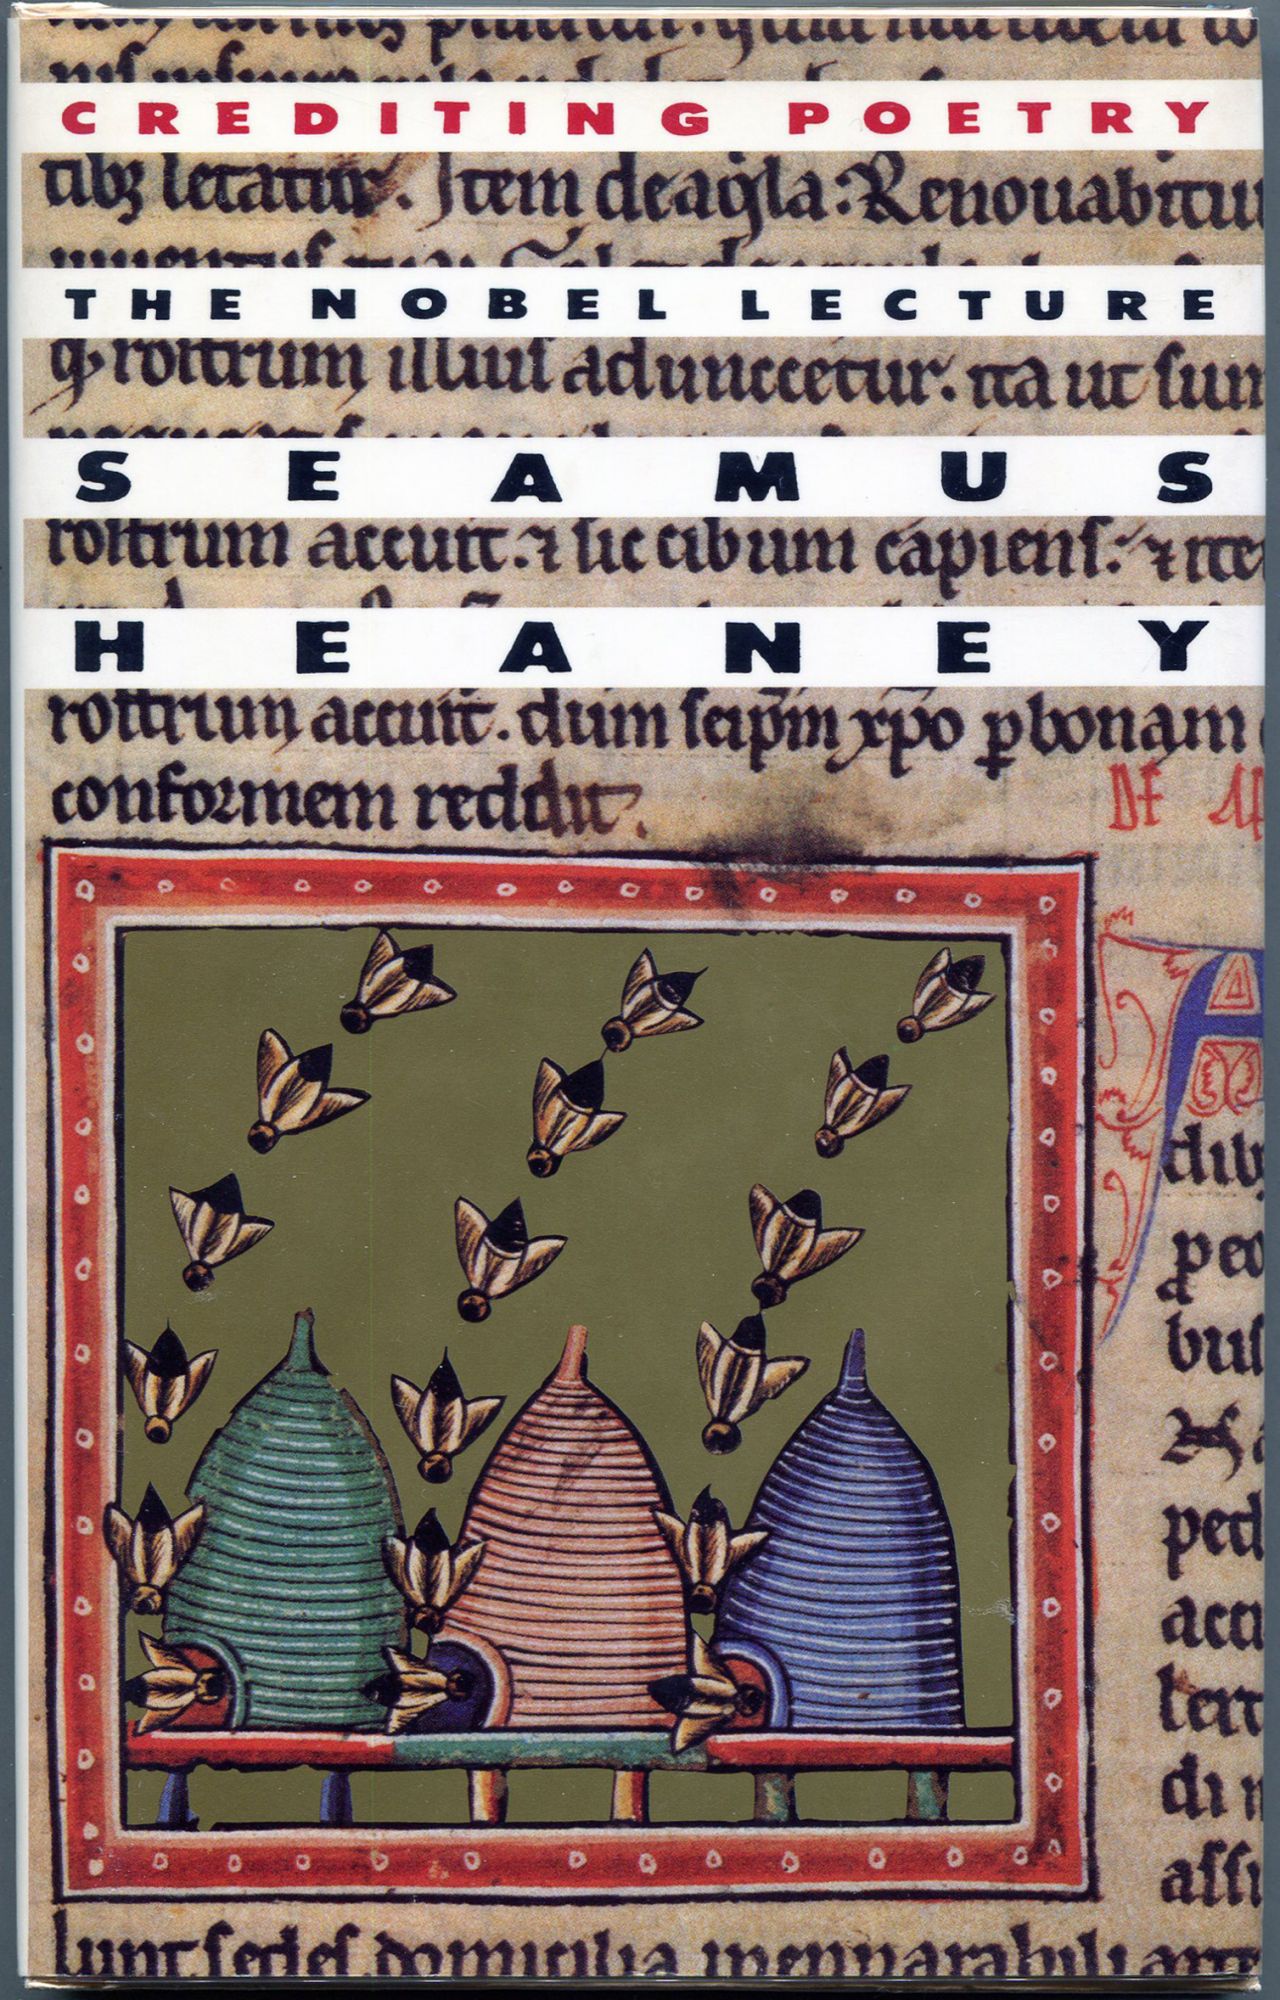 CREDITING POETRY
tibꝫ letatur. Item de aq̇la: Renouabitur
THE NOBEL LECTURE
rostrum illius aduncetur. ita ut
SEAMUS
rostrum accuit. ⁊ sic cibum capiens. ⁊
HEANEY
rostrum accuit. dum seip̄m xp̄o ꝑ bonam
conformem reddit.
DE AP
A
dibꝫ
bus
ped
accu
di
assu
lunt. sedes domicilia inenarrabili arte